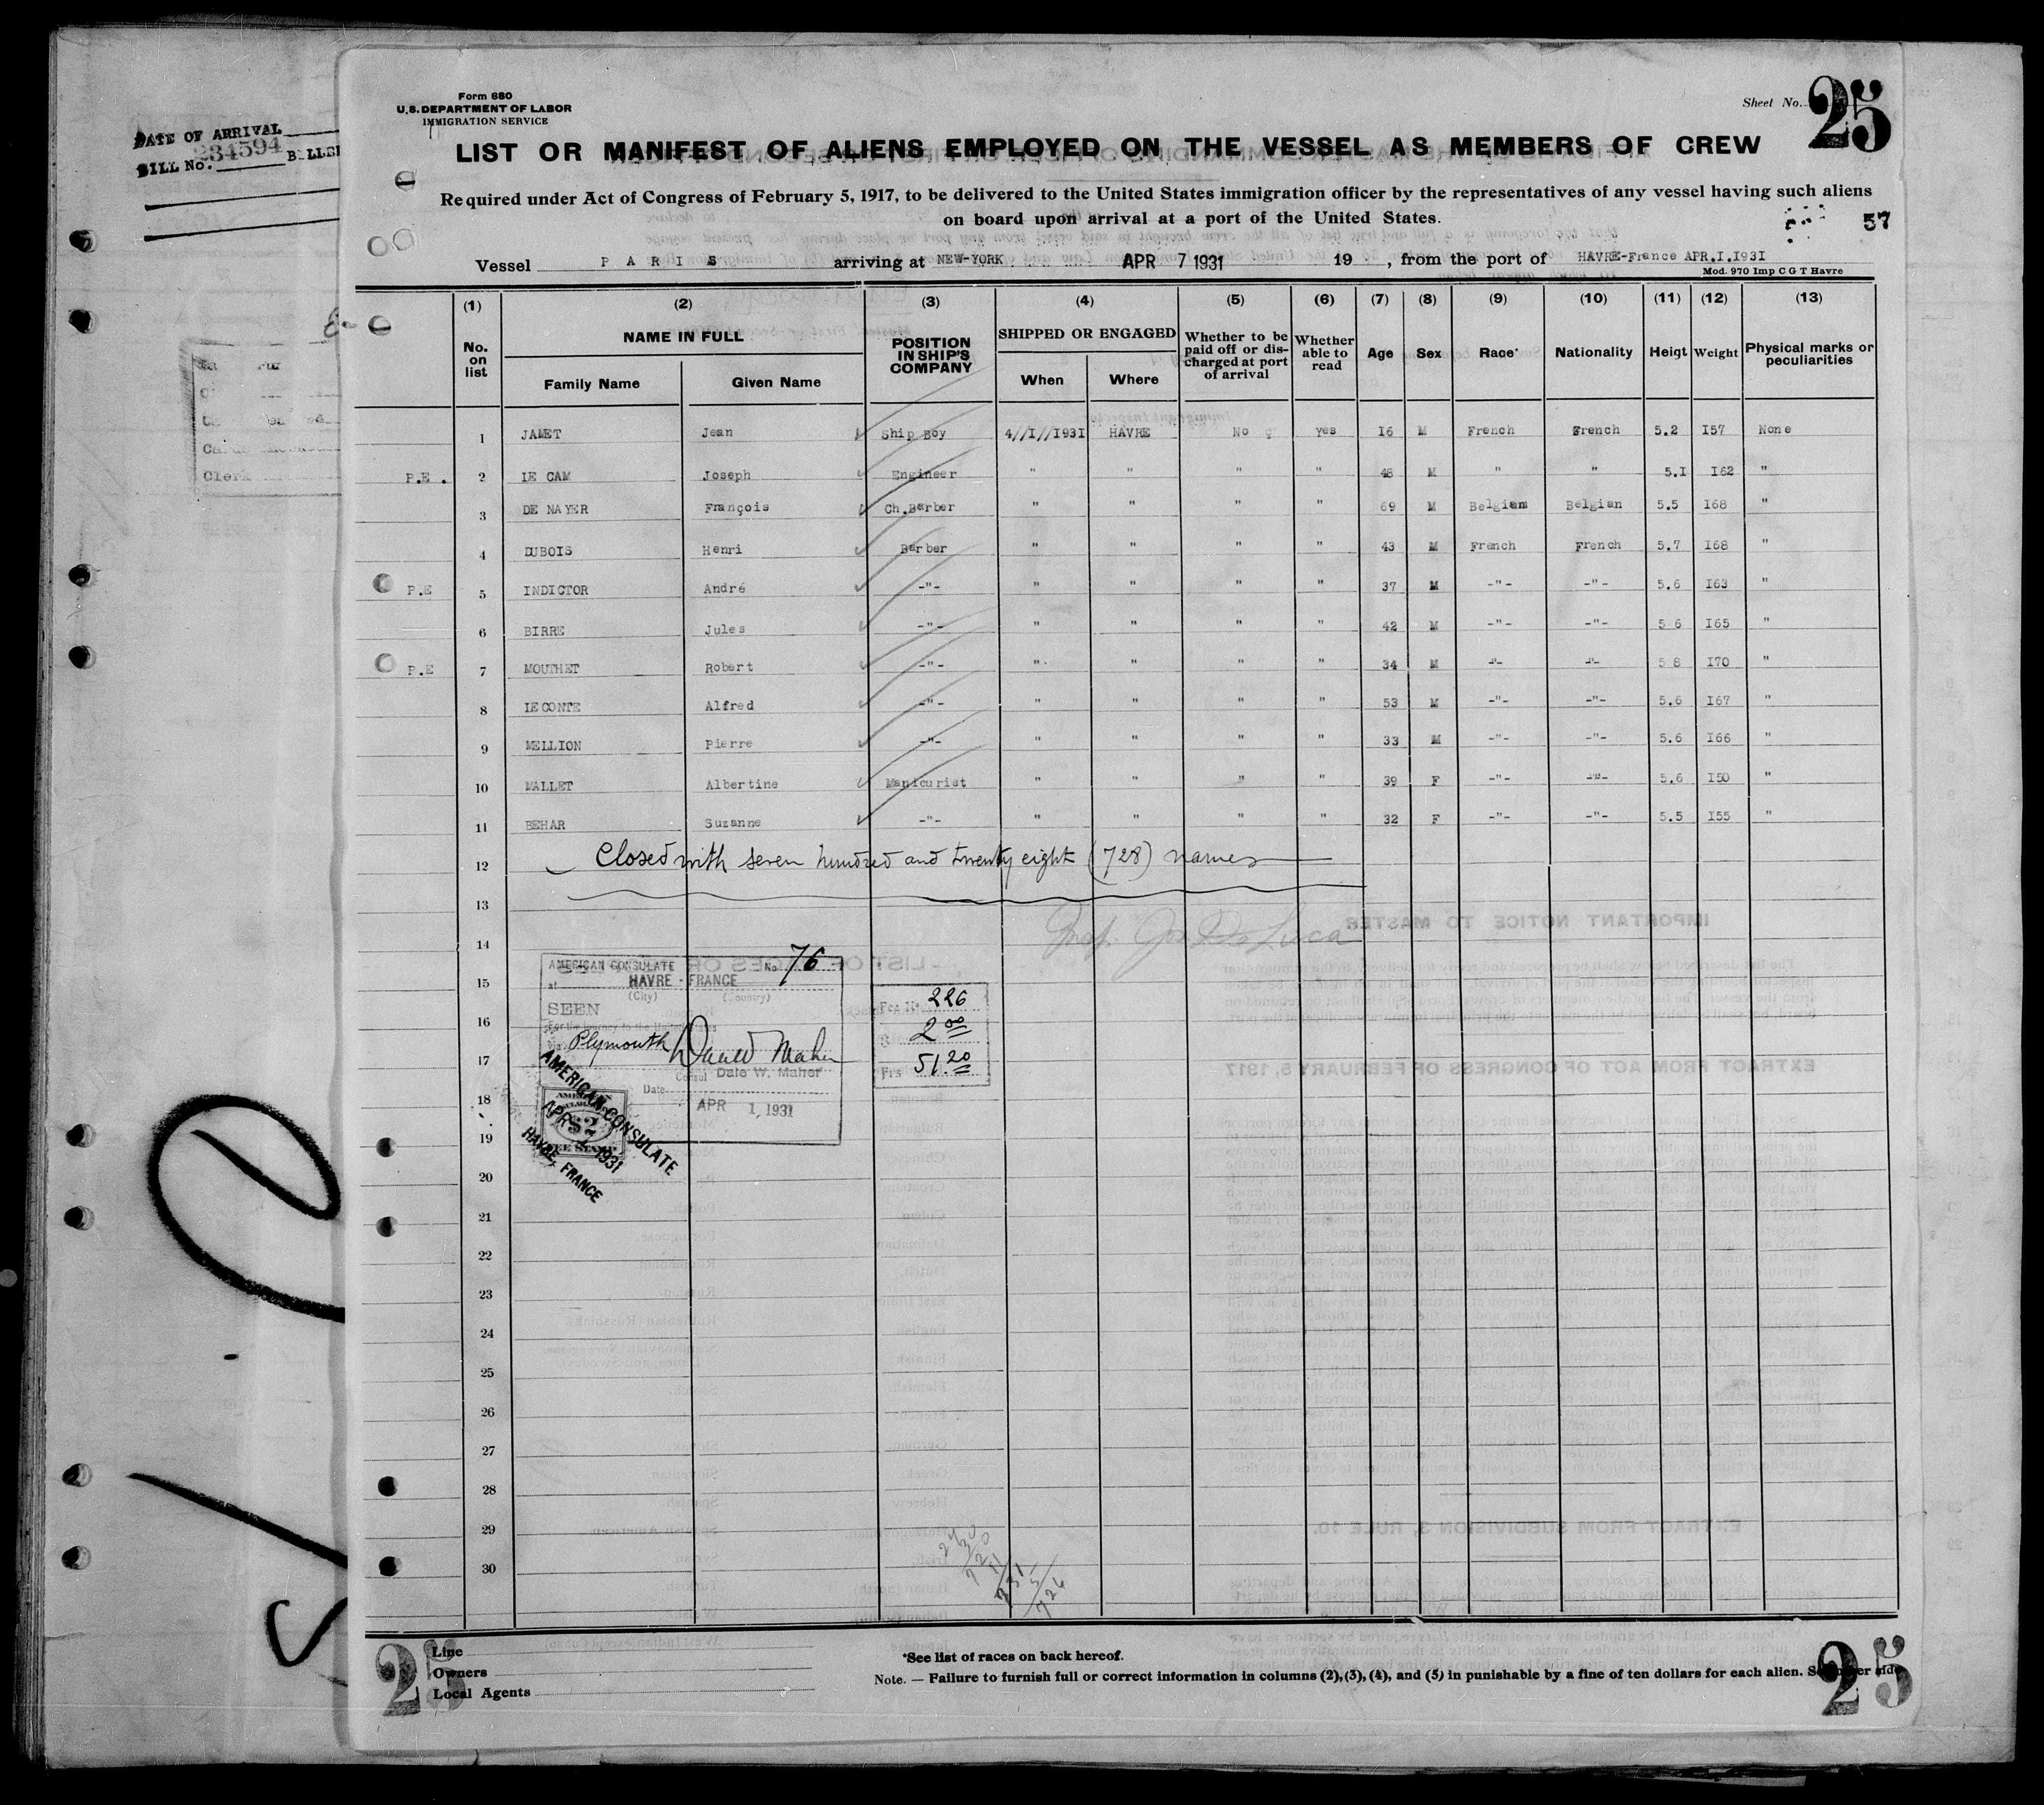 Form 680
U.S. DEPARTMENT OF LABOR
IMMIGRATION SERVICE
Sheet No. 25
DATE OF ARRIVAL
BILL No. 234594
LIST OR MANIFEST OF ALIENS EMPLOYED ON THE VESSEL AS MEMBERS OF CREW
Required under Act of Congress of February 5, 1917, to be delivered to the United States immigration officer by the representatives of any vessel having such aliens
on board upon arrival at a port of the United States.
57
Vessel PARIS arriving at NEW-YORK APR 7 1931 19 , from the port of HAVRE-France APR.I.I93I
Mod. 970 Imp C G T Havre
(1) (2) (3) (4) (5) (6) (7) (8) (9) (10) (11) (12) (13)
No. on list NAME IN FULL Family Name Given Name POSITION IN SHIP'S COMPANY SHIPPED OR ENGAGED When Where Whether to be paid off or discharged at port of arrival Whether able to read Age Sex Race* Nationality Heigt Weight Physical marks or peculiarities
1 JAMET Jean Ship Boy 4//I//I93I HAVRE No yes I6 M French French 5.2 I57 None
P.E. 2 LE CAM Joseph Engineer " " " " 48 M " " 5.I I62 "
3 DE NAYER François Ch.Barber " " " " 69 M Belgian Belgian 5.5 I68 "
4 DUBOIS Henri Barber " " " " 43 M French French 5.7 I68 "
P.E 5 INDICTOR André -"- " " " " 37 M -"- -"- 5.6 I63 "
6 BIRRE Jules -"- " " " " 42 M -"- -"- 5 6 I65 "
P.E 7 MOUTHET Robert -"- " " " " 34 M -"- -"- 5 8 I70 "
8 LECONTE Alfred -"- " " " " 53 M -"- -"- 5.6 I67 "
9 MELLION Pierre -"- " " " " 33 M -"- -"- 5.6 I66 "
10 MALLET Albertine Manicurist " " " " 39 F -"- -"- 5.6 I50 "
11 BEHAR Suzanne -"- " " " " 32 F -"- -"- 5.5 I55 "
12 Closed with seven hundred and twenty eight (728) names
13
14
15
16
17
18
19
20
21
22
23
24
25
26
27
28
29
30
AMERICAN CONSULATE No 76
at HAVRE - FRANCE
(City) (Country)
SEEN
For the journey to the United States
via Plymouth
Consul Dale W. Maher
Date APR 1, 1931
Fee No 226
$ 2.00
Frs 51.20
AMERICAN CONSULATE
APR 1 1931
HAVRE, FRANCE
$2
FEE STAMP
Clerk
Line
Owners
Local Agents
*See list of races on back hereof.
Note. — Failure to furnish full or correct information in columns (2),(3),(4), and (5) in punishable by a fine of ten dollars for each alien.
25
25